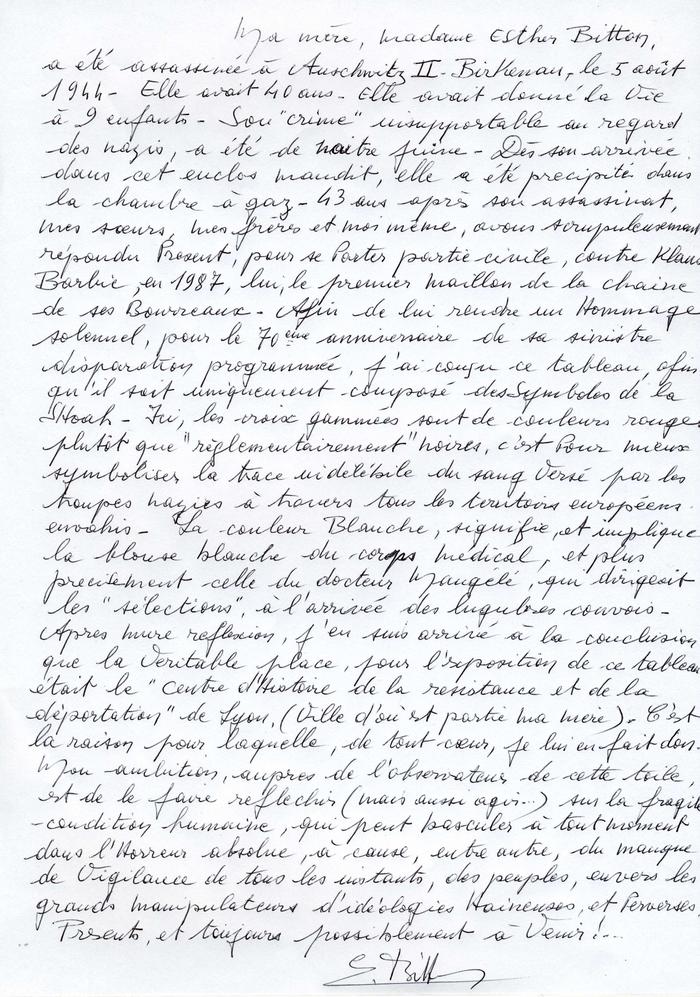 Ma mère, madame Esther Bitton,
a été assassinée à Auschwitz II - Birkenau, le 5 août
1944 - Elle avait 40 ans - Elle avait donné la Vie
à 9 enfants - Son "crime" insupportable au regard
des nazis, a été de naitre juive - Dès son arrivée
dans cet enclos maudit, elle a été précipitée dans
la chambre à gaz - 43 ans après son assassinat,
mes sœurs, mes frères et moi même, avons scrupuleusement
répondu Présent, pour se Porter partie civile, contre Klaus
Barbie, en 1987, lui, le premier maillon de la chaine
de ses Bourreaux - Afin de lui rendre un Hommage
solennel, pour le 70ème anniversaire de sa sinistre
disparation programmée, j'ai conçu ce tableau, afin
qu'il soit uniquement composé des Symboles de la
Shoah - Ici, les croix gammées sont de couleurs rouges
plutôt que "règlementairement" noires, c'est Pour mieux
symboliser la trace indélébile du sang Versé par les
troupes nazies à travers tous les territoirs européens
envahis - La couleur Blanche, signifie, et implique
la blouse blanche du corps médical, et plus
precisement celle du docteur Mangelé, qui dirigeait
les "sélections", à l'arrivée des lugubres convois -
Après mure reflexion, j'en suis arrivé à la conclusion
que la Veritable place, pour l'exposition de ce tableau
était le "Centre d'Histoire de la resistance et de la
déportation" de Lyon, (Ville d'où est partie ma mère) - C'est
la raison pour laquelle, de tout cœur, je lui en fait don.
Mon ambition, aupres de l'observateur de cette toile
est de le faire reflechir (mais aussi agir...) sur la fragile
-condition humaine, qui peut basculer à tout moment
dans l'Horreur absolue, à cause, entre autre, du manque
de Vigilance de tous les instants, des peuples, envers les
grands manipulateurs d'idéologies Haineuses, et Perverses
Présents, et toujours possiblement à Venir !...
E. Bitton